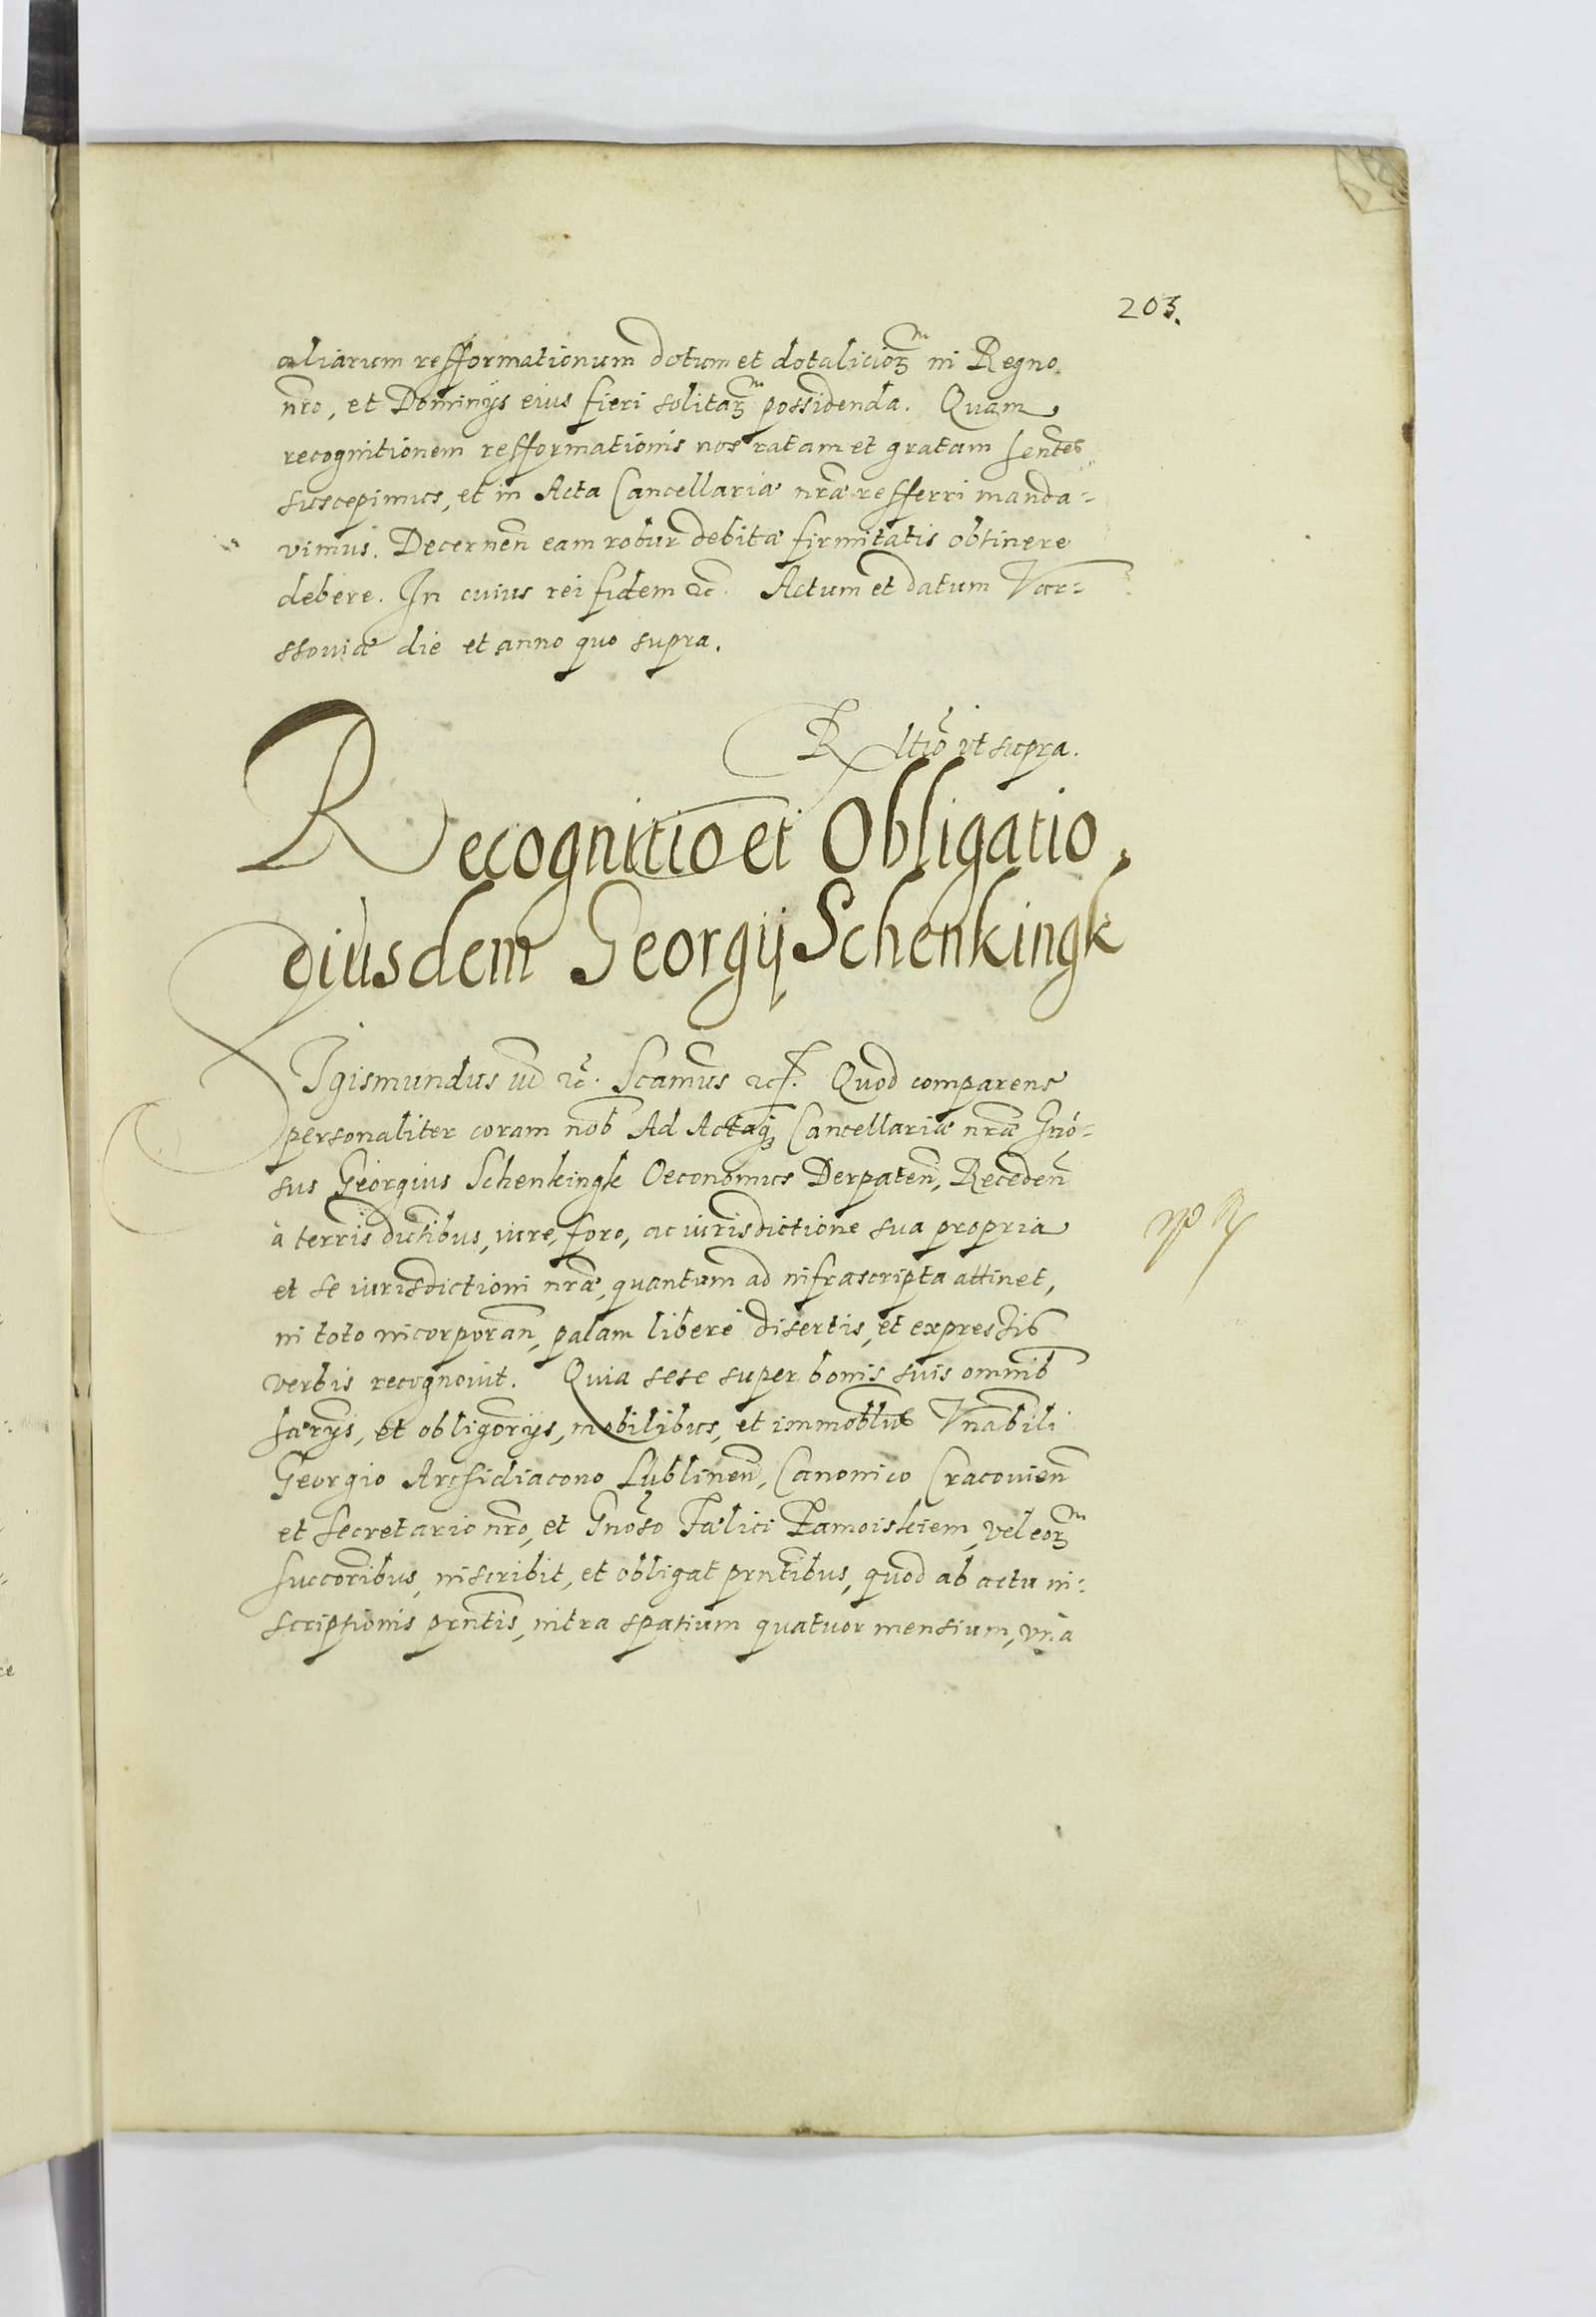 203.
aliarum refformationum dotum et dotalicioꝝ in Regno
nr̃o, et Dominijs eius fieri solitaꝝ possidenda. Quam
recognitionem refformationis nos ratam et gratam hentes
suscepimus, et in Acta Cancellariæ nr̃æ refferri manda-
vimus. Decernen̄ eam robur debitæ firmitatis obtinere
debere. In cuius rei fidem ꝛc̃. Actum et datum Var-
ssouiæ die et anno quo supra.
R ltio ut supra.
Recognitio et Obligatio
eiusdem Georgij Schenkingk
Sigismundus ut ꝛc̃. Scamus ꝛc. Quod comparens
personaliter coram nob Ad Actaqȝ Cancellariæ nr̃æ Gnõ-
sus Georgius Schenkingk Oeconomus Derpaten̄, Receden̄
à terris ductibus, iure, foro, ac iurisdictione sua propria
et se iurisdictioni nr̃æ, quantum ad infrascripta attinet,
in toto incorporan̄, palam liberè disertis, et expressis
verbis recognovit. Quia sese super bonis suis omnib
hær̃ijs, et obligorijs, mobilibus, et immobilibus Vnãbili
Georgio Archidiacono Lublinen̄, Canonico Cracovien̄
et Secretario nr̃o, et Gnõso Fælici Zamoiskiem, vel eoꝝ
succoribus, inscribit, et obligat prntibus, quod ab actu in-
scriptionis prntis, intra spatium quatuor mensium, vnà